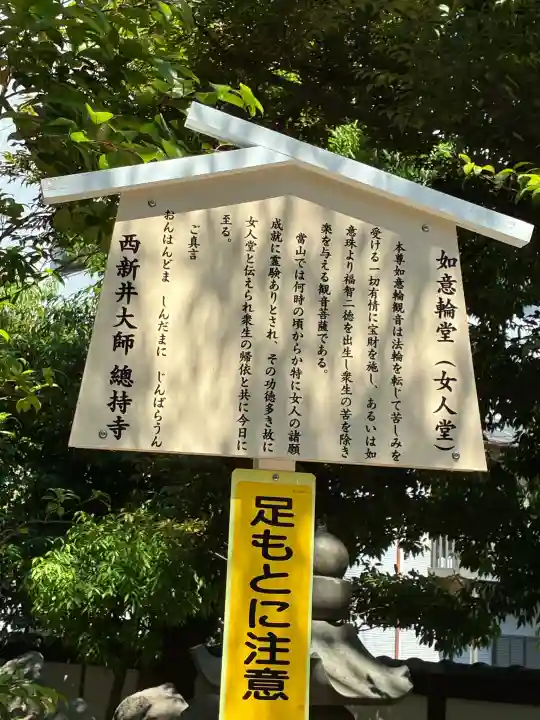 如意輪堂（女人堂）
本尊如意輪観音は法輪を転じて苦しみを
受ける一切有情に宝財を施し、あるいは如
意珠より福智二徳を出生し衆生の苦を除き
楽を与える観音菩薩である。
當山では何時の頃からか特に女人の諸願
成就に霊験ありとされ、その功徳多き故に
女人堂と伝えられ衆生の帰依と共に今日に
至る。
ご真言
おんはんどま しんだまに じんばらうん
西新井大師 總持寺
足もとに注意